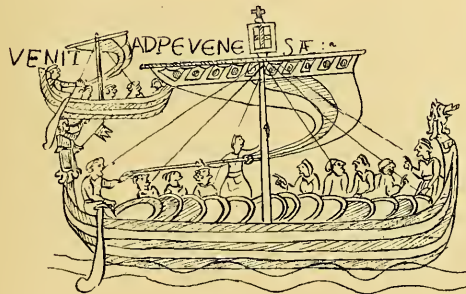 VENIT ADPEVENE SÆ: